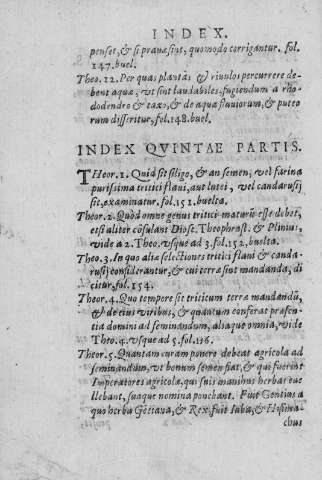 INDEX.
penset, & si prauæ sint, quomodo corrigantur. fol.
147. buel.
Theo. 12. Per quas plantas & riuulos percurrere de-
bent aquæ, vt sint laudabiles. fugiendum a rho-
dodendro & taxo, & de aqua fluuiorum, & puteo
rum disseritur, fol. 148. buel.
INDEX QVINTAE PARTIS.
THeor. 1. Quid sit siligo, & an semen, vel farina
purissima tritici flaui, aut lutei, vel candarusij
sit, examinatur. fol. 151. buelta.
Theor. 2. Quòd omne genus tritici maturū esse debet,
etsi aliter cōsulant Diosc. Theophrast. & Plinius,
vide a 2. Theo. vsque ad 3. fol. 152, buelta.
Theo. 3. In quo aliæ selectiones tritici flaui & canda-
rusij considerantur, & cui terræ sint mandanda, di
citur, fol. 154.
Theor. 4. Quo tempore sit triticum terræ mandandū,
& de eius viribus, & quantum conferat præsen-
tia domini ad seminandum, aliaque omnia, vide
Theo. 4. vsque ad 5. fol. 156.
Theor. 5. Quantam curam ponere debeat agricola ad
seminandum, vt bonum semen fiat, & qui fuerint
Imperatores agricolæ, qui suis manibus herbas eue
llebant, suaque nomina ponebant. Fuit Gentius a
quo herba Gētiana, & Rex fuit Iubæ, & Lisima-
chus